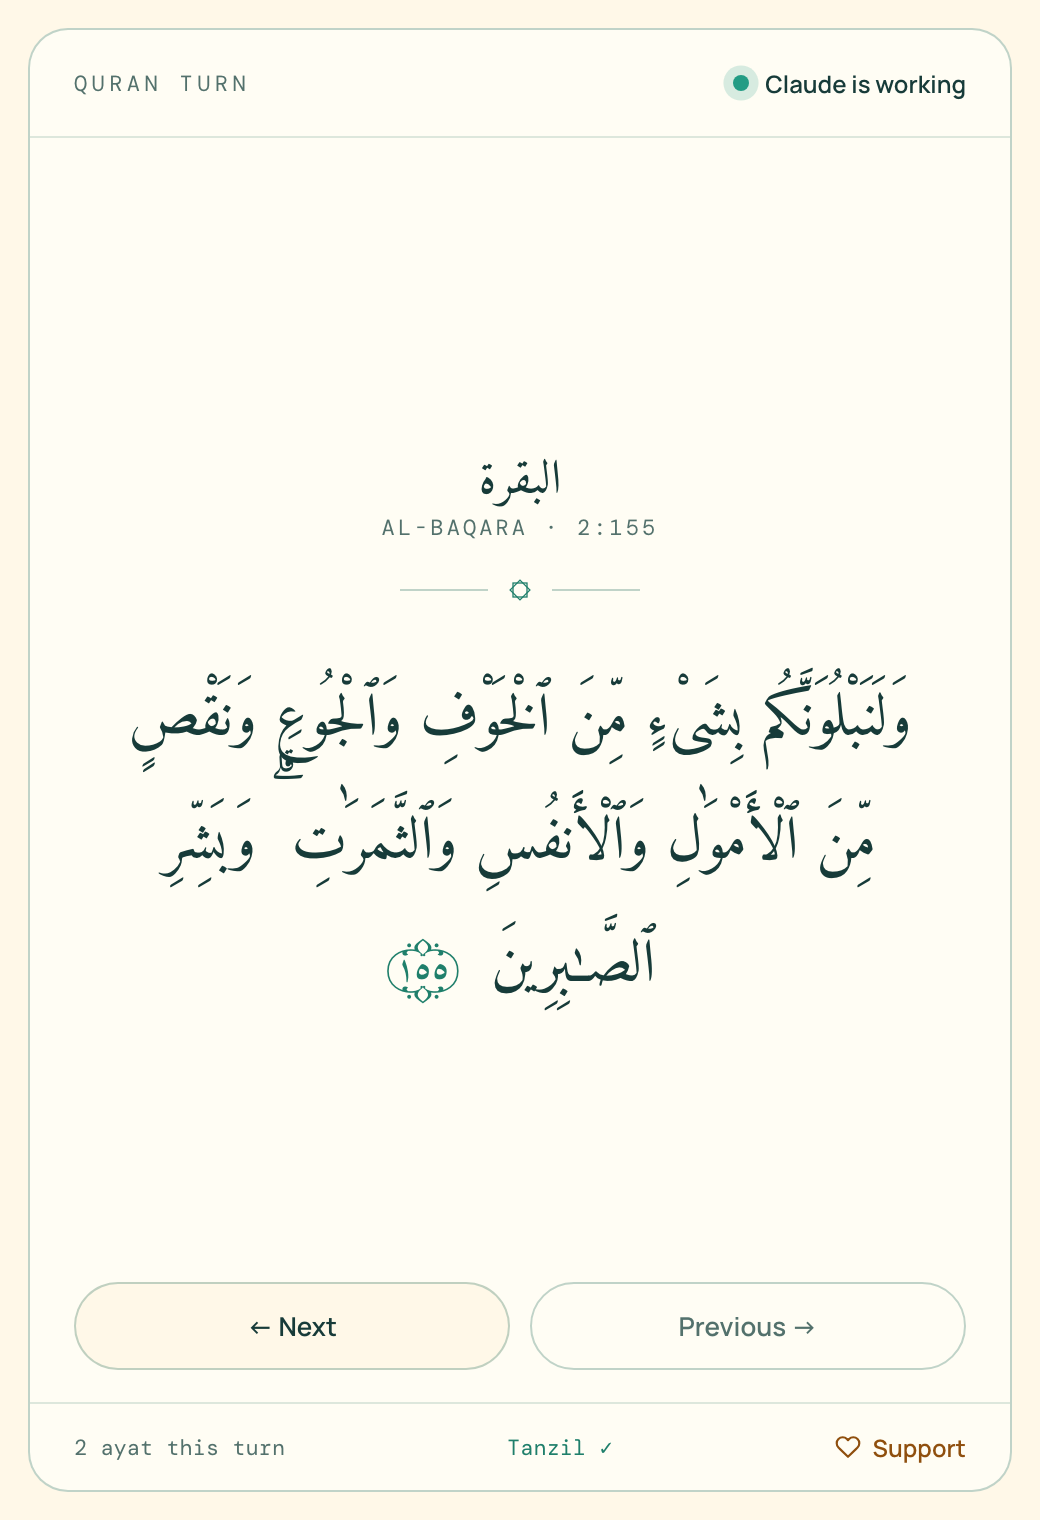 QURAN TURN
Claude is working
البقرة
AL-BAQARA · 2:155
وَلَنَبْلُوَنَّكُم بِشَىْءٍ مِّنَ ٱلْخَوْفِ وَٱلْجُوعِ وَنَقْصٍ
مِّنَ ٱلْأَمْوَٰلِ وَٱلْأَنفُسِ وَٱلثَّمَرَٰتِ ۗ وَبَشِّرِ
ٱلصَّـٰبِرِينَ ١٥٥
← Next
Previous →
2 ayat this turn
Tanzil ✓
Support